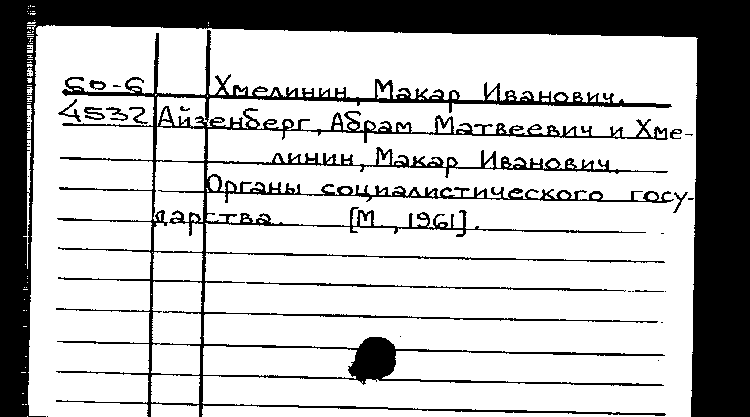 60-6 Хмелинин, Макар Иванович.
4532 Айзенберг, Абрам Матвеевич и Хме-
линин, Макар Иванович.
Органы социалистического госу-
дарства. [М., 1961].